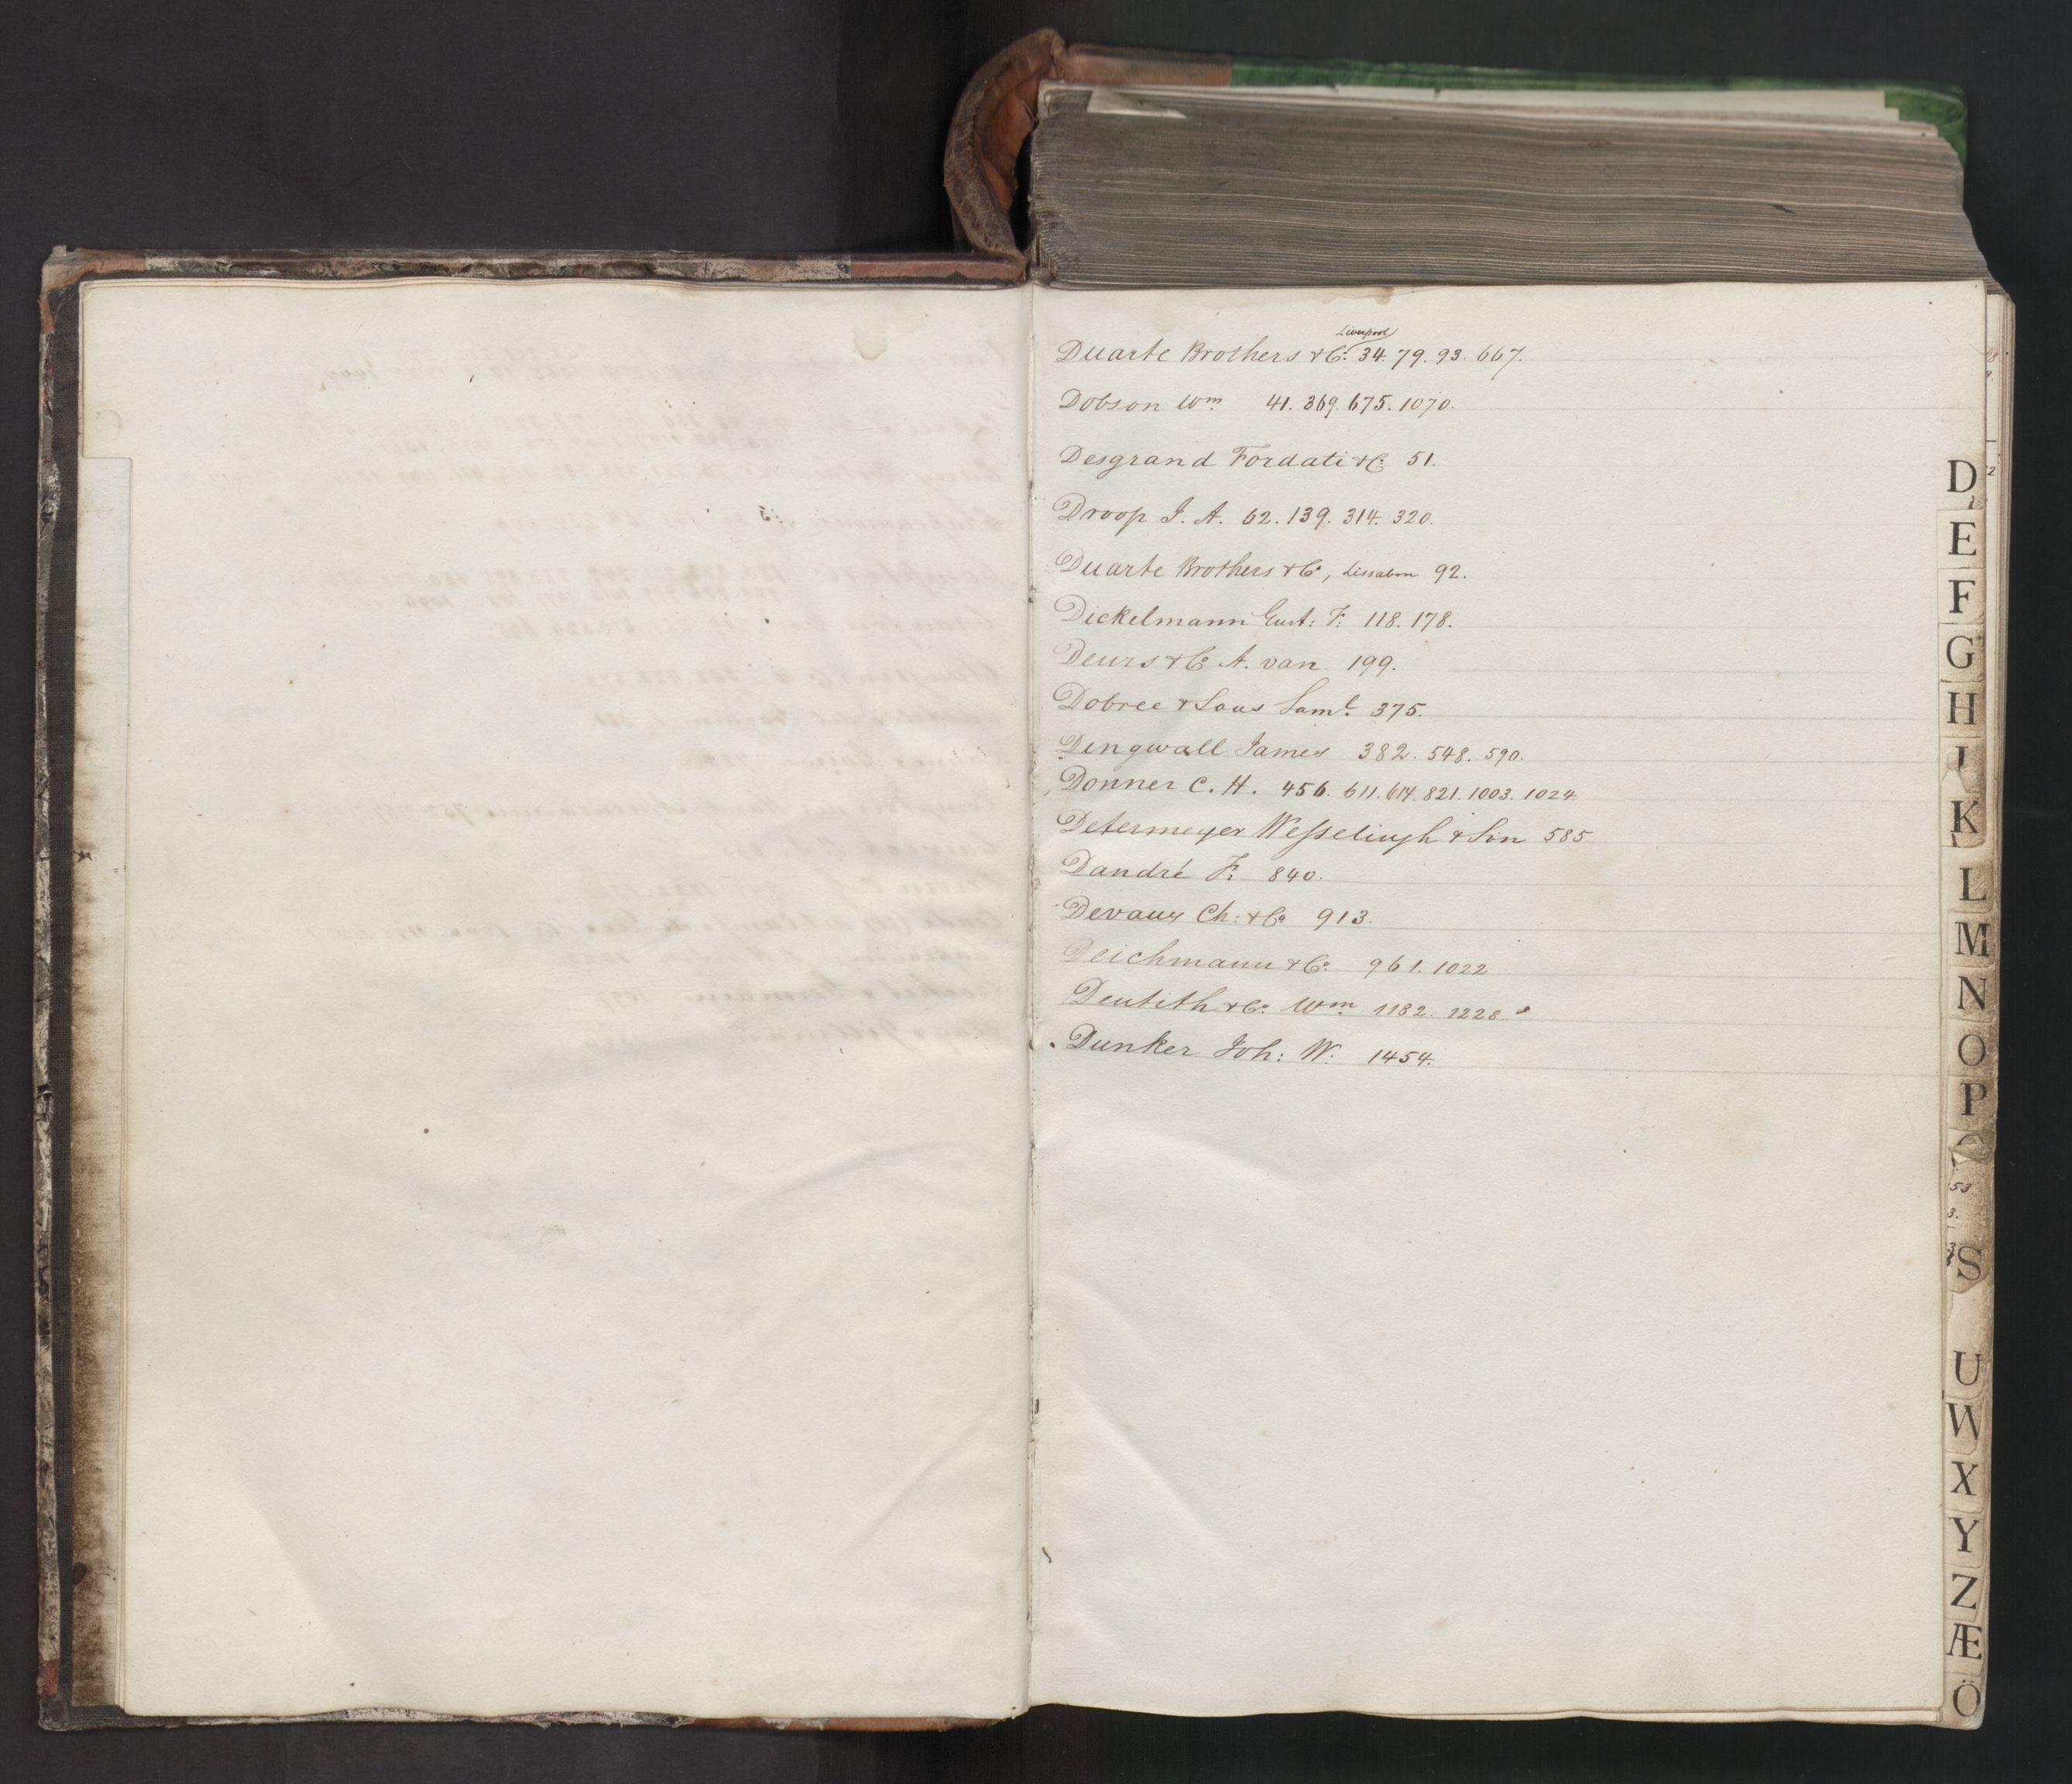 Liverpool
Duarte Brothers & Co. 34. 79. 93. 667.
Dobson Wm. 41. 369. 675. 1070.
Desgrand Fordati & Co. 51.
Droop J. A. 62. 139. 314. 320.
Duarte Brothers & Co, Lissabon 92.
Dickelmann Gust: F: 118. 178.
Deurs & Co A. van 199.
Dobree & Sons Saml. 375.
Dingwall James 382. 548. 590.
Donner C. H. 456. 611. 614. 821. 1003. 1024
Determeyer Wesselingh & Son 585
Dandré F: 840.
Devaux Ch: & Co 913.
Deichmann & Co. 961. 1022
Dentith & Co. Wm. 1182. 1228
Dunker Joh: W. 1454.
D
E
F
G
H
I
K
L
M
N
O
P
53
3.
S
U
W
X
Y
Z
Æ
Ö